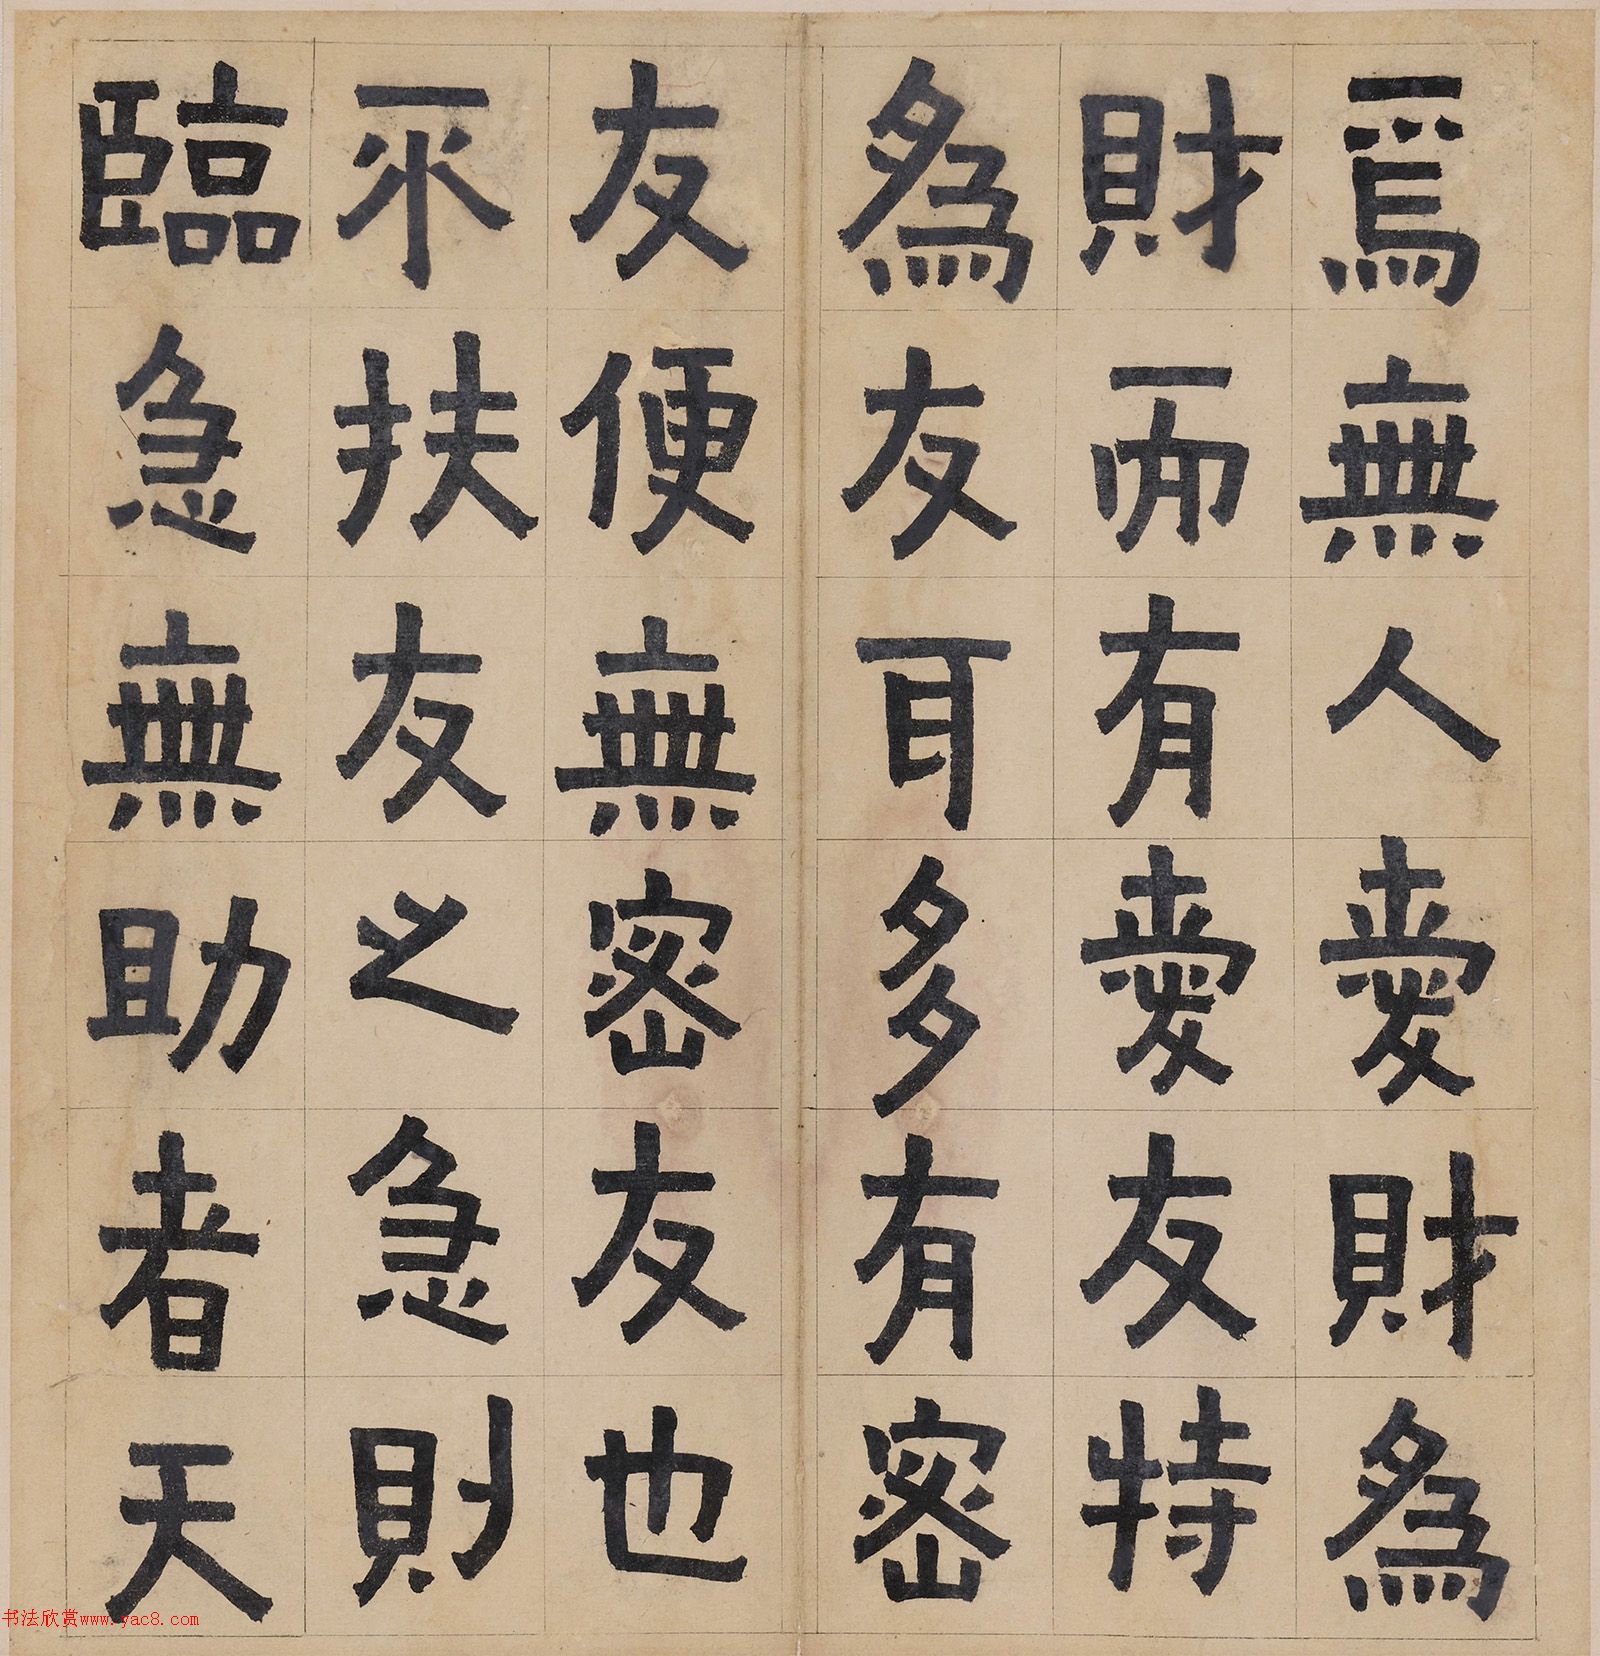 焉無人愛財為
財而有愛友特
為友耳多有密
友便無密友也
不扶友之急則
臨急無助者天
书法欣赏www.yac8.com